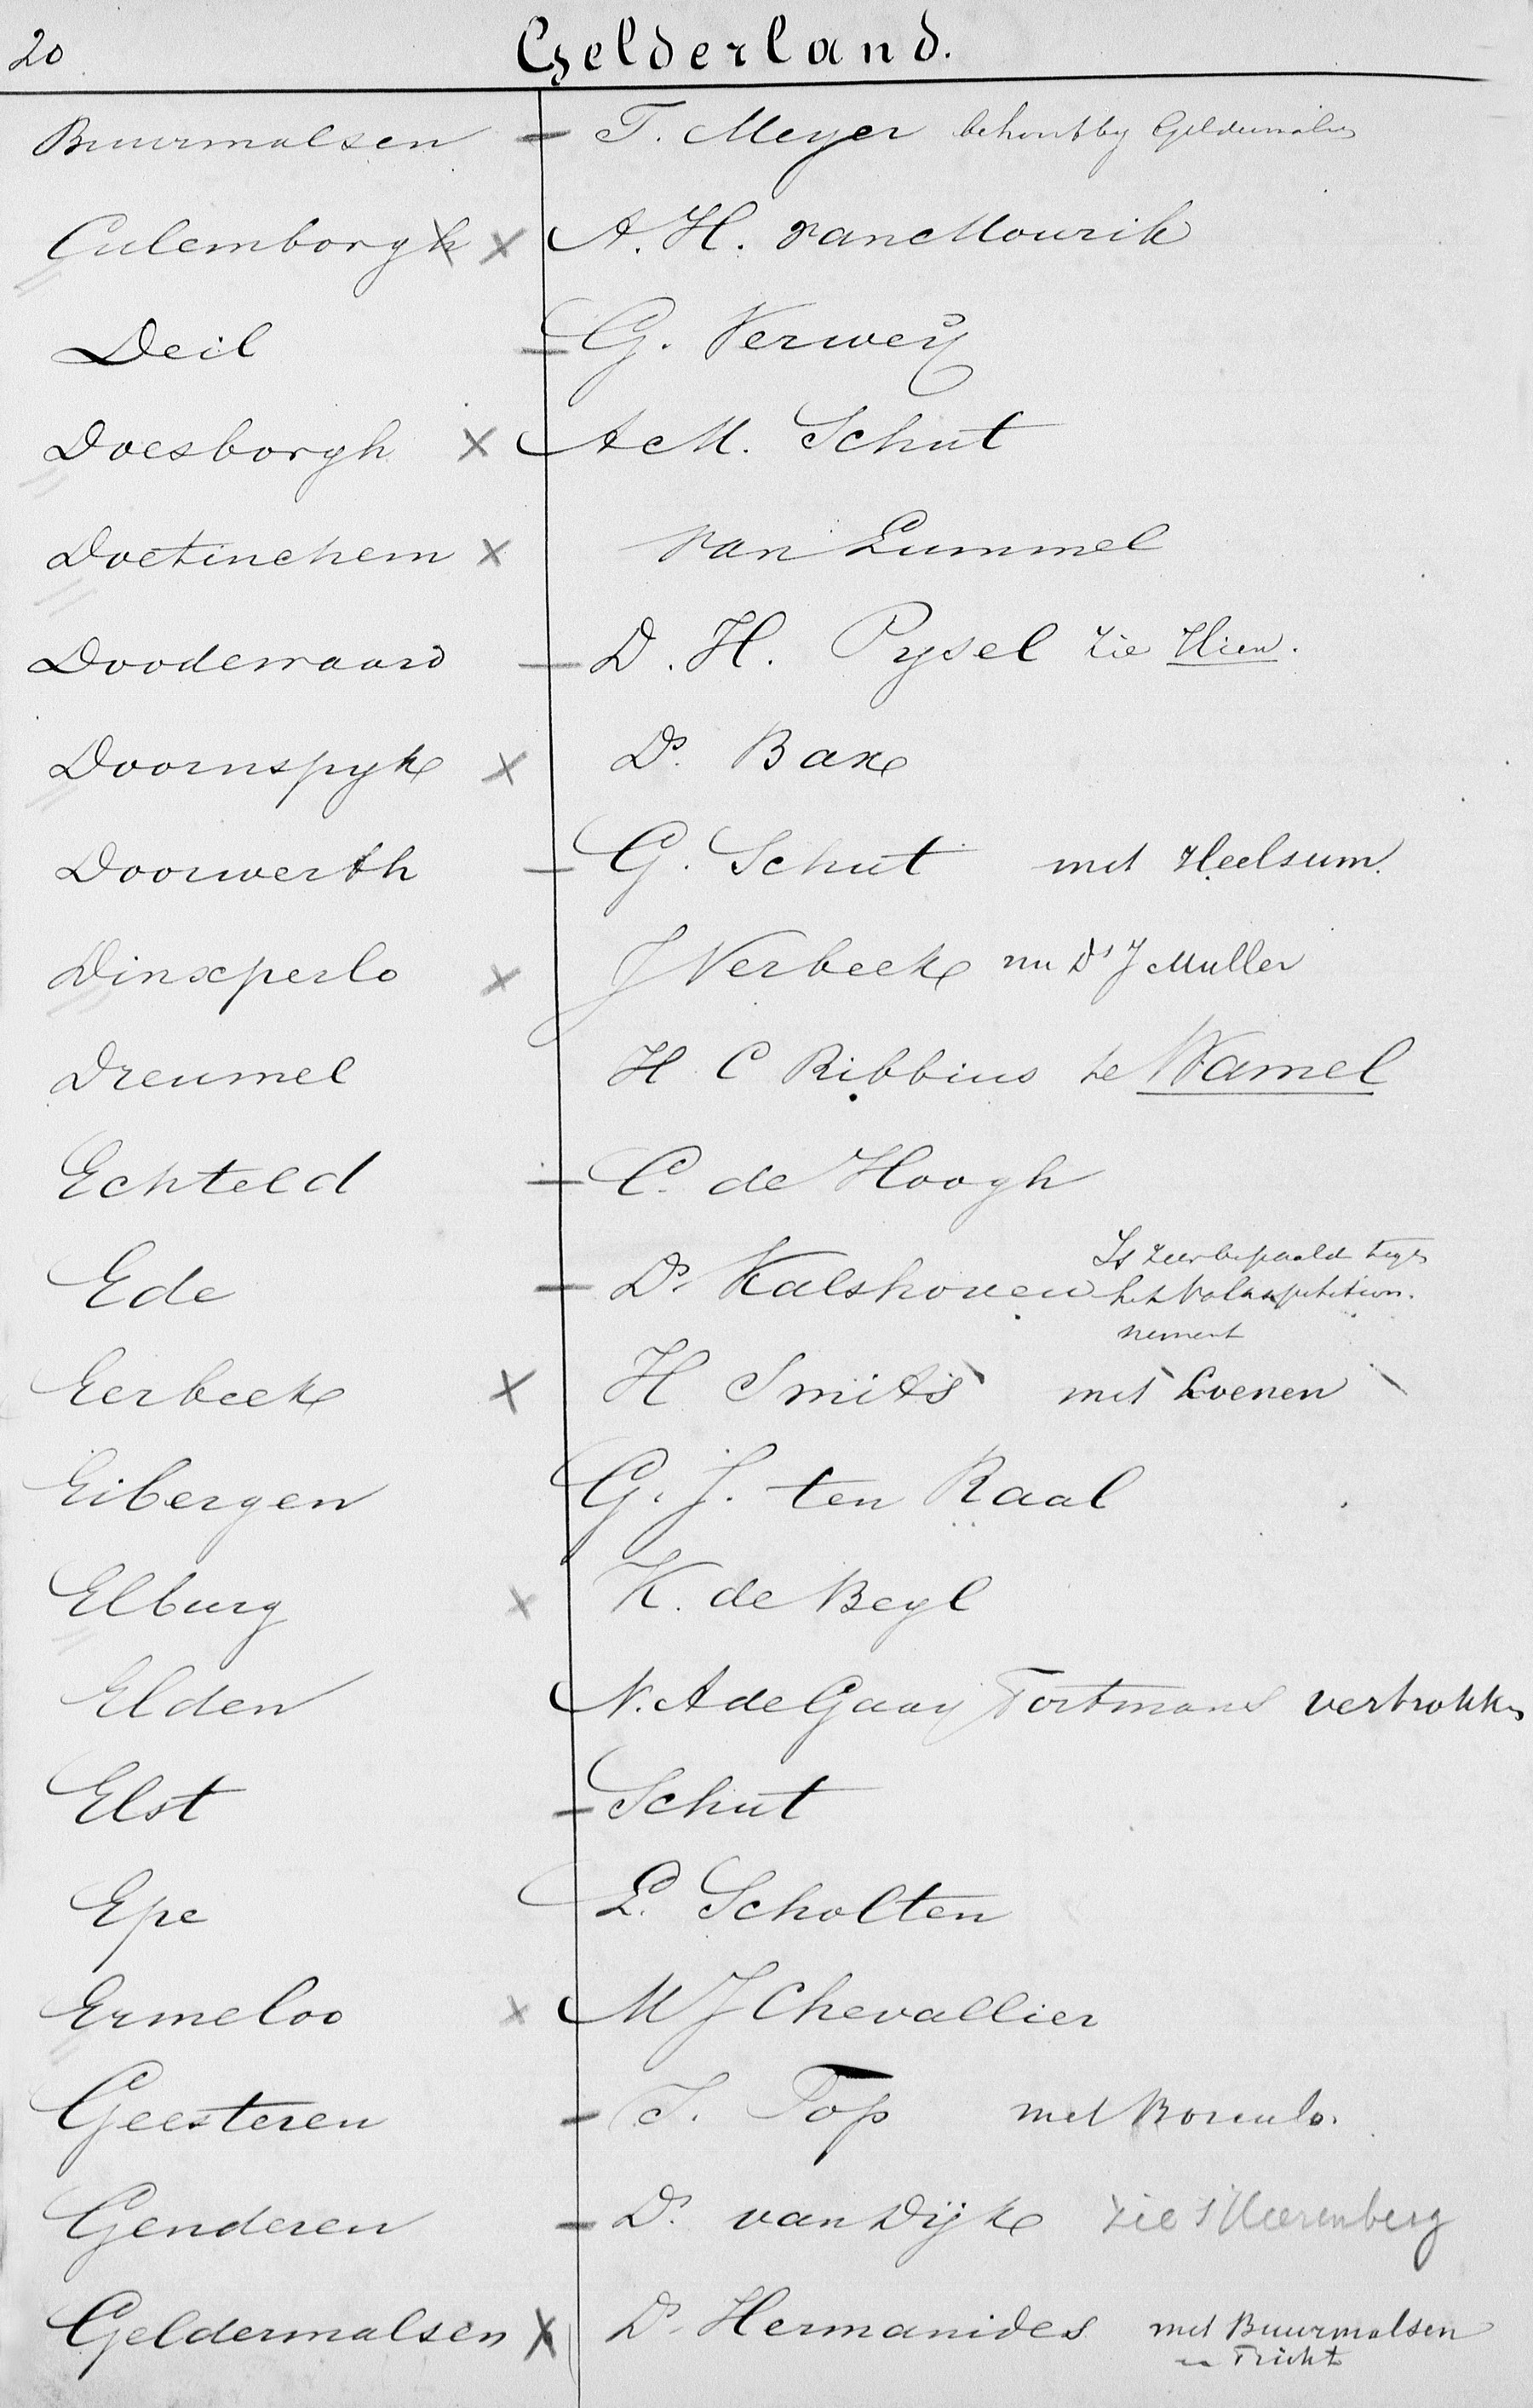 20 Gelderland.
Buurmalsen — T. Meyer behoort by Geldermalsen
Culemborgh × A. H. van Mourik
Deil — G. Verweÿ
Doesborgh × A M. Schut
Doetinchem × van Lummel
Doodewaard — D. H. Pysel zie Hien.
Doornspyk × Ds. Bax
Doorwerth — G. Schut met Heelsum.
Dinxperlo × J Verbeek nu Ds J Muller
Dreumel H C Ribbius te Wamel
Echteld — C. de Hoogh
Ede — Ds. Kalshoven Is zeer bepaald tegen
het Volkspetition.
nement
Eerbeek × H Smits met Loenen
Eibergen G. J. ten Raal
Elburg × K. de Beyl
Elden N. A de Gaay Fortmans vertrokken
Elst — Schut
Epe L. Scholten
Ermeloo × M J Chevallier
Geesteren — T. Top met Borculo.
Genderen — Ds. van Dijk zie s'Heerenberg
Geldermalsen × Ds. Hermanides met Buurmalsen
en Tricht